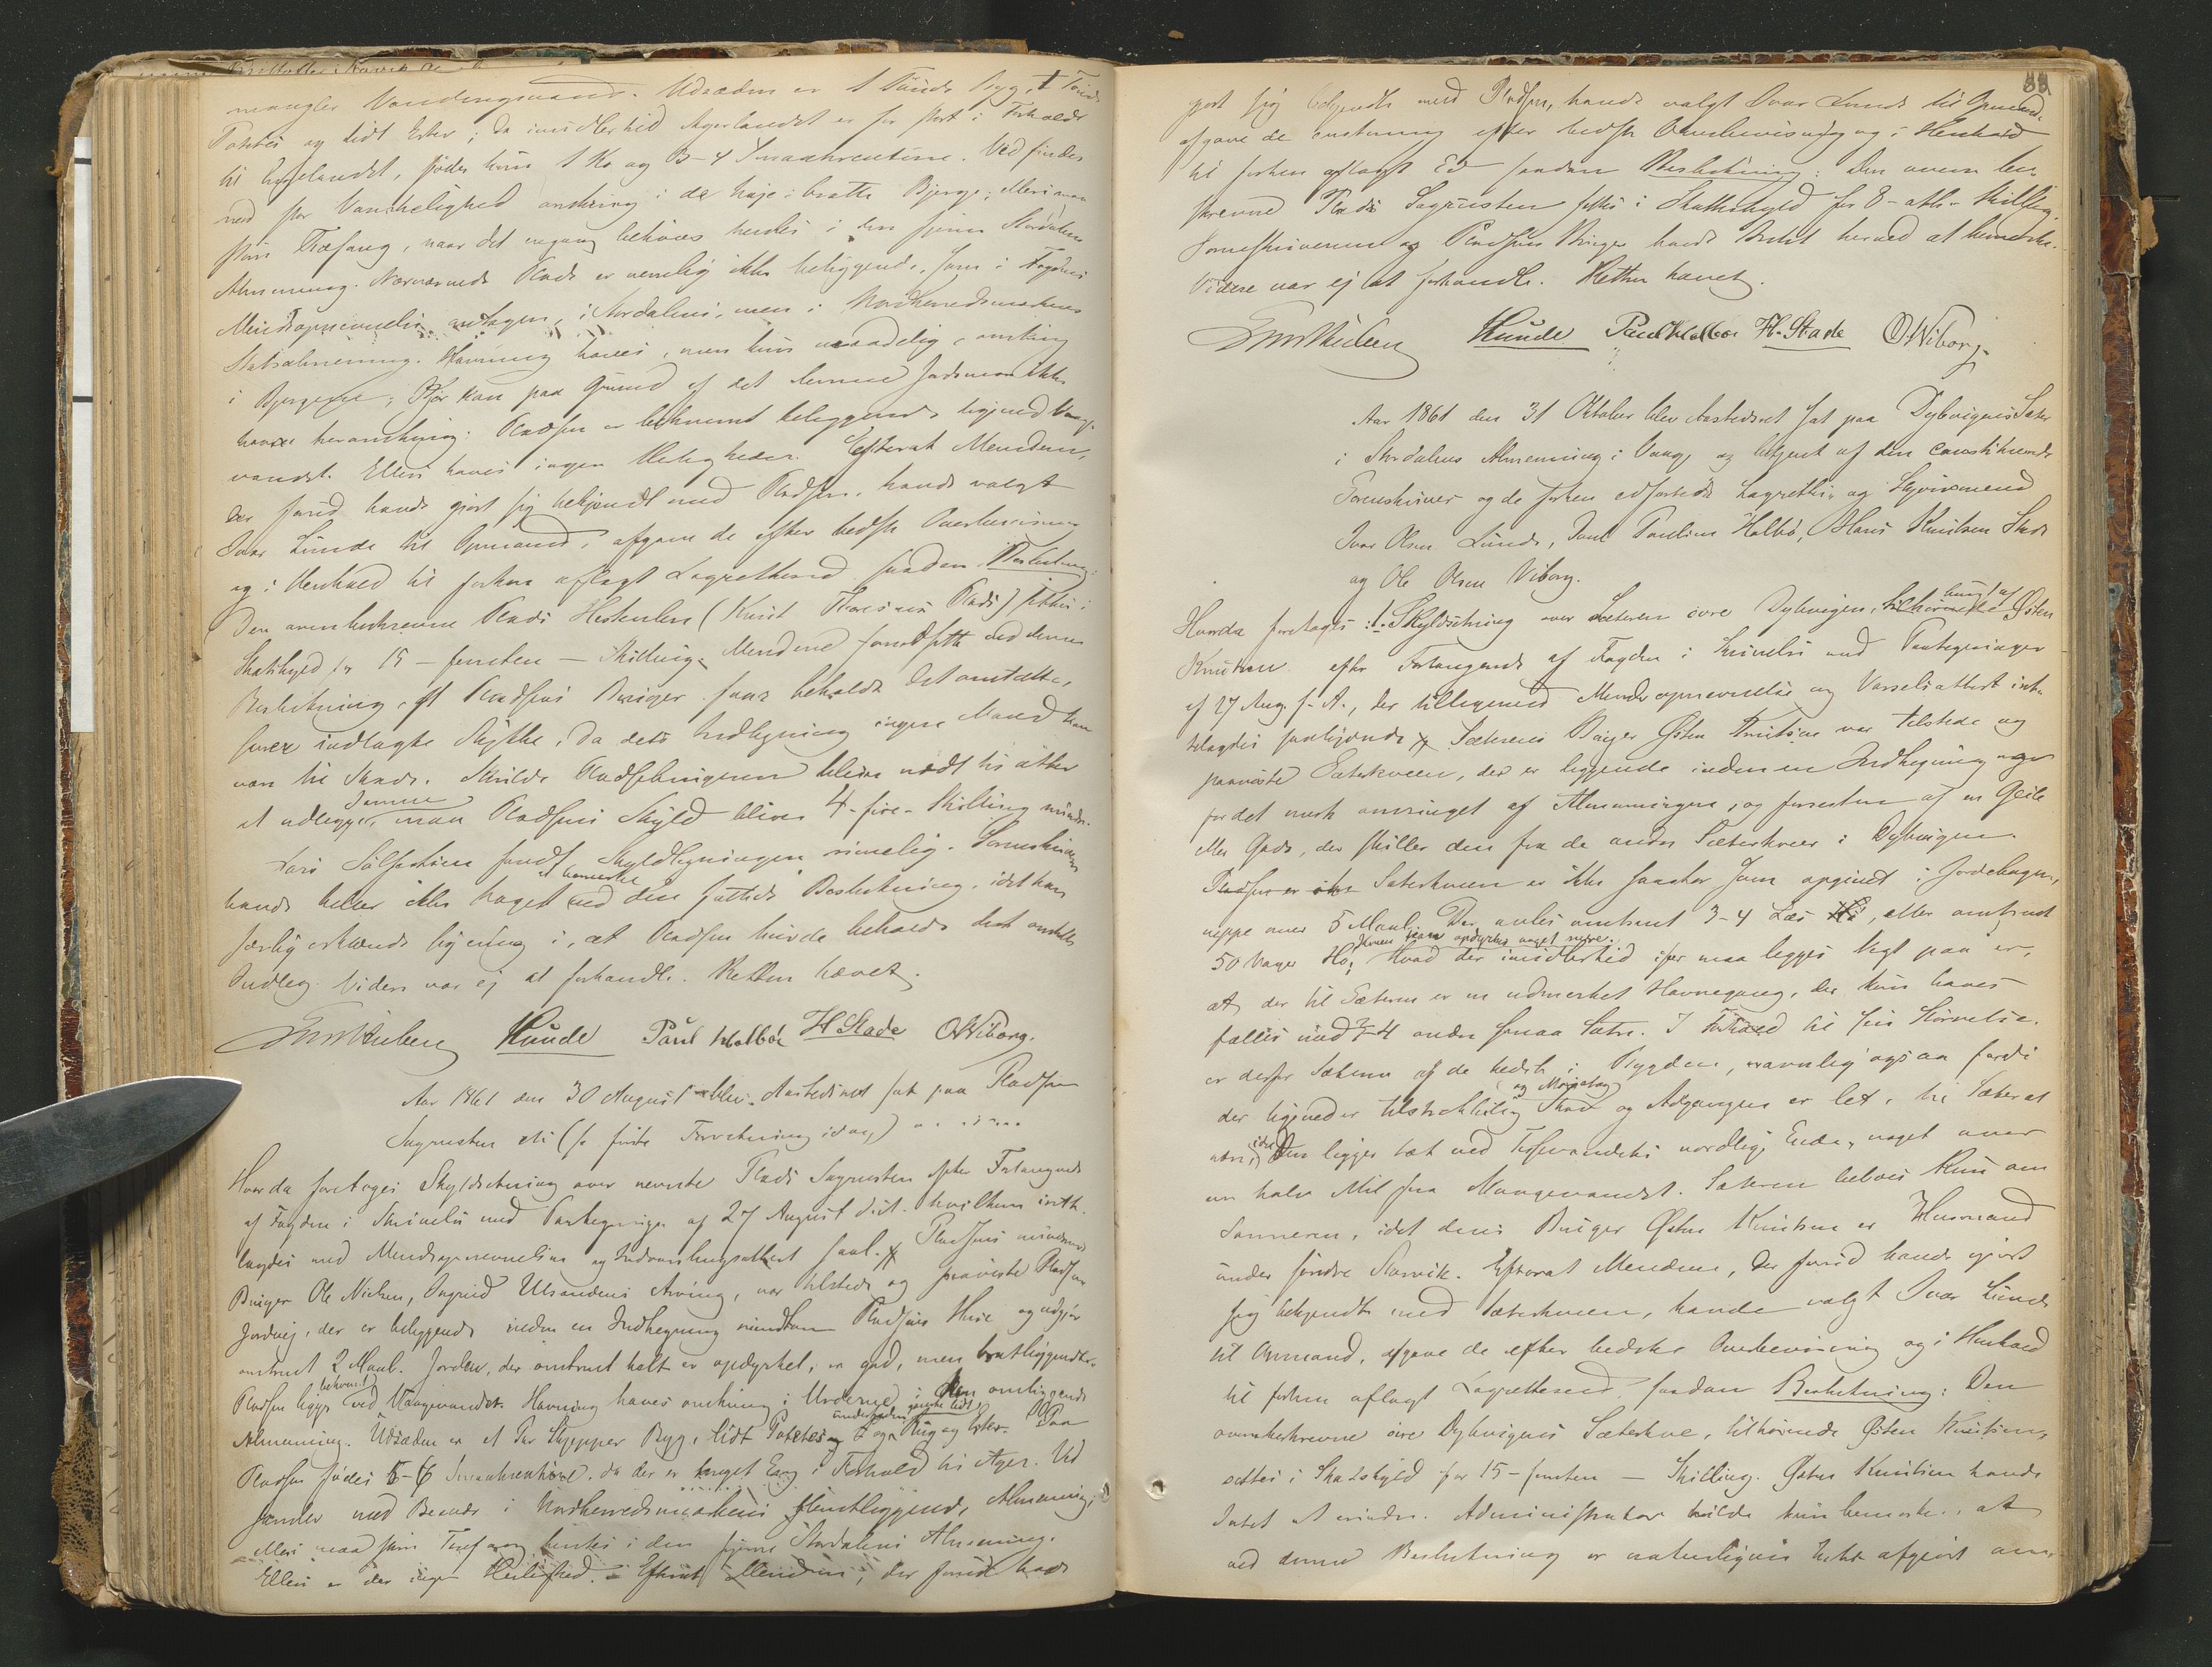 mangler Vandingsvand. Udsæden er 1 Tønde Byg, 1 Tønde
Potetes og lidt Erter; da imidlertid Agerlandet er for stort i Forhold
til Englandet, fødes kun 1 Ko og 3-4 Smaakreature. Ved findes
med stor Vanskelighed omkring i de høie bratte Bjerge; ellers maa
større Træfang, naar det engang behøves hentes i den fjerne Stordalens
Almenning. Nærværende Plads er nemlig ikke beliggende, som i Fogdens
Mendsopnævnelse antagen, i Stordalens, men i Nordherredsmarkens
Statsalmenning. Havning haves, men kun maadelig, omkring
i Bjergene; Kjør kan paa Grund af det lumne Jordsmon ikke
havne heromkring. Pladsen er bekvemt beliggende ligeved Vangs-
vandet. Ellers haves ingen Herligheder. Efterat Mændene,
der forud havde gjort sig bekjendt med Pladsen, havde valgt
Ivar Lunde til Opmand, afgave de efter bedste Overbevisning
og i Henhold til forhen aflagt Lagretteed saadan Beslutning:
Den ovenbeskrevne Plads Hestenlien (Knut Thoresens Plads) sættes i
Skatskyld for 15 - femten - Skilling. Mændene forudsætte ved denne
Beslutning, at Pladsens Bruger faar beholde det omtalte,
senere indlagte Stykke, da dets Indlegning ingen Mand kan
være til Skade. Skulde Pladsebrugeren blive nødt til atter
at udlegge samme maa Pladsens Skyld blive 4 - fire - Skilling mindre.
Lars Sølfestsen fandt Skyldlegningen rimelig. Sorenskriveren
havde heller ikke noget at bemerke ved den fattede Beslutning, idet han
særlig erklærede sig enig i, at Pladsen burde beholde det omtalte
Indleg. Videre var ej at forhandle. Retten hævet.
Lunde Paul Holbøe H Stade O Wiborg.
Aar 1861 den 30 August blev Aastedsret sat paa Pladsen
Sagrusten etc (se første Forretning idag)
Hvorda foretoges Skyldsetning over nevnte Plads Sagrusten efter Forlangende
af Fogden i Skrivelse med Paategninger af 27 August dsst. hvilken irette-
lagdes med Mendsopnævnelse og Indvarslingsattest saal. Pladsens nuværende
Bruger Ole Nielsen, Ingrid Ulsandens Arving, var tilstede og paaviste Pladsens
Jordvej, der er beliggende inden en Indhegning rundtom Pladsens Huse og udgjør
omtrent 2 Maal. Jorden, der omtrent helt er opdyrket, er god, men bratliggende.
Pladsen ligger bekvemt ved Vangsvandet. Havning haves omkring i Urderne i den omliggende
Almenning. Udsæden er et Par Skjepper Byg, lidt Potetes og undertiden ganske lidt Rug og Erter. Paa
Pladsen fødes 5-6 Smaakreature, da der er meget Eng i Forhold til Ager. Ved
samles med Besvær i Nordherredsmarkens fjentliggende Almenning;
ellers maa større Træfang hentes i den fjerne Stordalens Almenning.
Ellers er der ingen Herlighed. Efterat Mendene, der forud havde
88
gjort sig bekjendte med Pladsen, havde valgt Ivar Lunde til Opmand,
afgave de enstemmig efter bedste Overbevisning og i Henhold
til forhen aflagt Ed saadan Beslutning: Den oven be-
skrevne Plads Sagrusten settes i Skatteskyld for 8 - otte - Skilling.
Sorenskriveren og Pladsens Bruger havde Intet herved at bemerke.
Videre var ej at forhandle. Retten hævet.
Lunde Paul Holbøe H. Stade O Wiborg.
Aar 1861 den 31 Oktober blev Aastedsret sat paa Dybvigens Sæter
i Stordalens Almenning i Vang, og betjent af den constituerede
Sorenskriver og de forhen edfæstede Lagrettes- og Skjønsmend
Ivar Olsen Lunde, Poul Poulsen Holbø, Hans Knutsen Stade
og Ole Olsen Viborg.
Hvorda foretoges: 1. Skyldsetning over Sæteren øvre Dybvigen, brugt af Østen
Knutsen efter Forlangende af Fogden i Skrivelse med Paategninger
af 27 Aug. f. A., der tilligemed Mendsopnævnelse og Varselsattest irette-
lagdes saalydende. Sæterens Bruger Østen Knutsen var tilstede og
paaviste Sæterkveen, der er liggende inden en Indhegning og er
for det mest omringet af Almenningen, og forresten af en Geile
eller Gade, der skiller den fra de andre Sæterkveer i Dybvigen.
Sæterkveen er ikke saa stor som opgivet i Jordebogen,
neppe over 5 Maal. Der avles omtrent 3-4 Læs Hø, eller omtrent
50 Vaager Hø; denne kan opdyrkes noget mere. Hvad der imidlertid især maa legges Vegt paa er,
at der til Sæteren er en udmerket Havnegang, der kun haves
fælles med 3-4 andre smaa Sætre. I Forhold til sin Størrelse
er derfor Sæteren af de bedste i Bygden, navnlig ogsaa fordi
der ligeved er tilstrekkelig Skov og Mosetag og Adgangen er let, til Sæter at
være, idet den ligger tæt ved Tesevandets nordlige Ende, noget over
en halv Mil fra Vangsvandet. Sæteren beboes kun om
Sommeren, idet dens Bruger Østen Knutsen er Husmand
under søndre Kørvik. Efterat Mendene, der forud havde gjort
sig bekjendte med Sæterkveen, havde valgt Ivar Lunde
til Opmand, afgave de efter bedste Overbevisning og i Henhold
til forhen aflagt Lagretteed saadan Beslutning: Den
ovenbeskrevne øvre Dybvigens Sæterkve, tilhørende Østen Knutsen,
settes i Skatskyld for 15 - femten - Skilling. Østen Knutsen havde
Intet at erindre. Administrator vilde kun bemerke, at
ved denne Beslutning er naturligvis Intet afgjort om